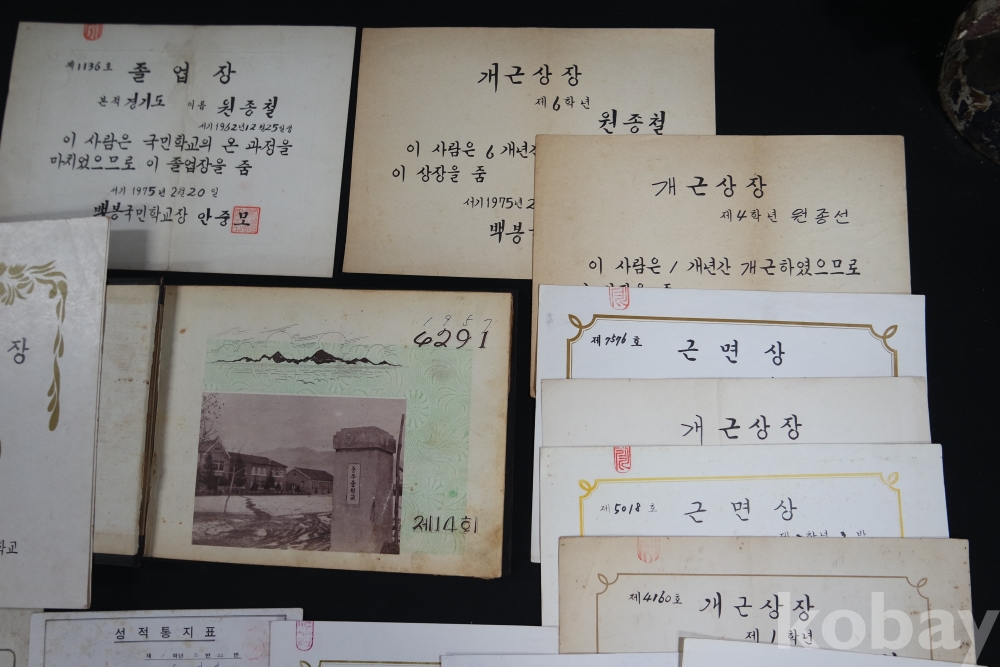 제1136호 졸업장
본적 경기도 이름 원종철
서기1962년12월25일생
이 사람은 국민학교의 온 과정을
마치었으므로 이 졸업장을 줌
서기 1975년 2월 20일
백봉국민학교장 안중모
개근상장
제6학년
원종철
이 사람은 6개년간
이 상장을 줌
서기1975년 2
백봉
개근상장
제4학년 원종선
이 사람은 1개년간 개근하였으므로
제7576호 근면상
개근상장
제5018호 근면상
제4160호 개근상장
제1학년
장
학교
1957
4291
중학교
제14회
성적통지표
kobay